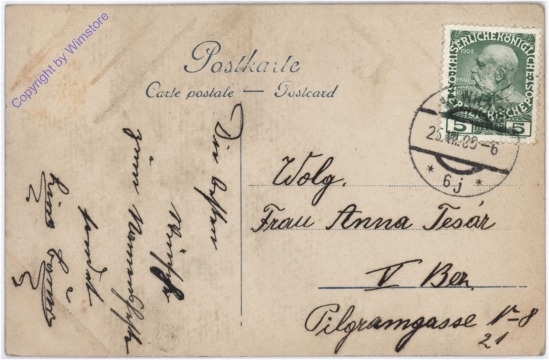 Copyright by Wimstore
Postkarte
Carte postale — Postcard
KAISERLICHE KÖNIGLICHE
1908
5 5
WIEN
25.VII.08-6
* 6j *
Die besten
Wünsche
zum Namensfeste
sendet
Wolg.
Frau Anna Tesár
V Bez.
Pilgramgasse N-8
21